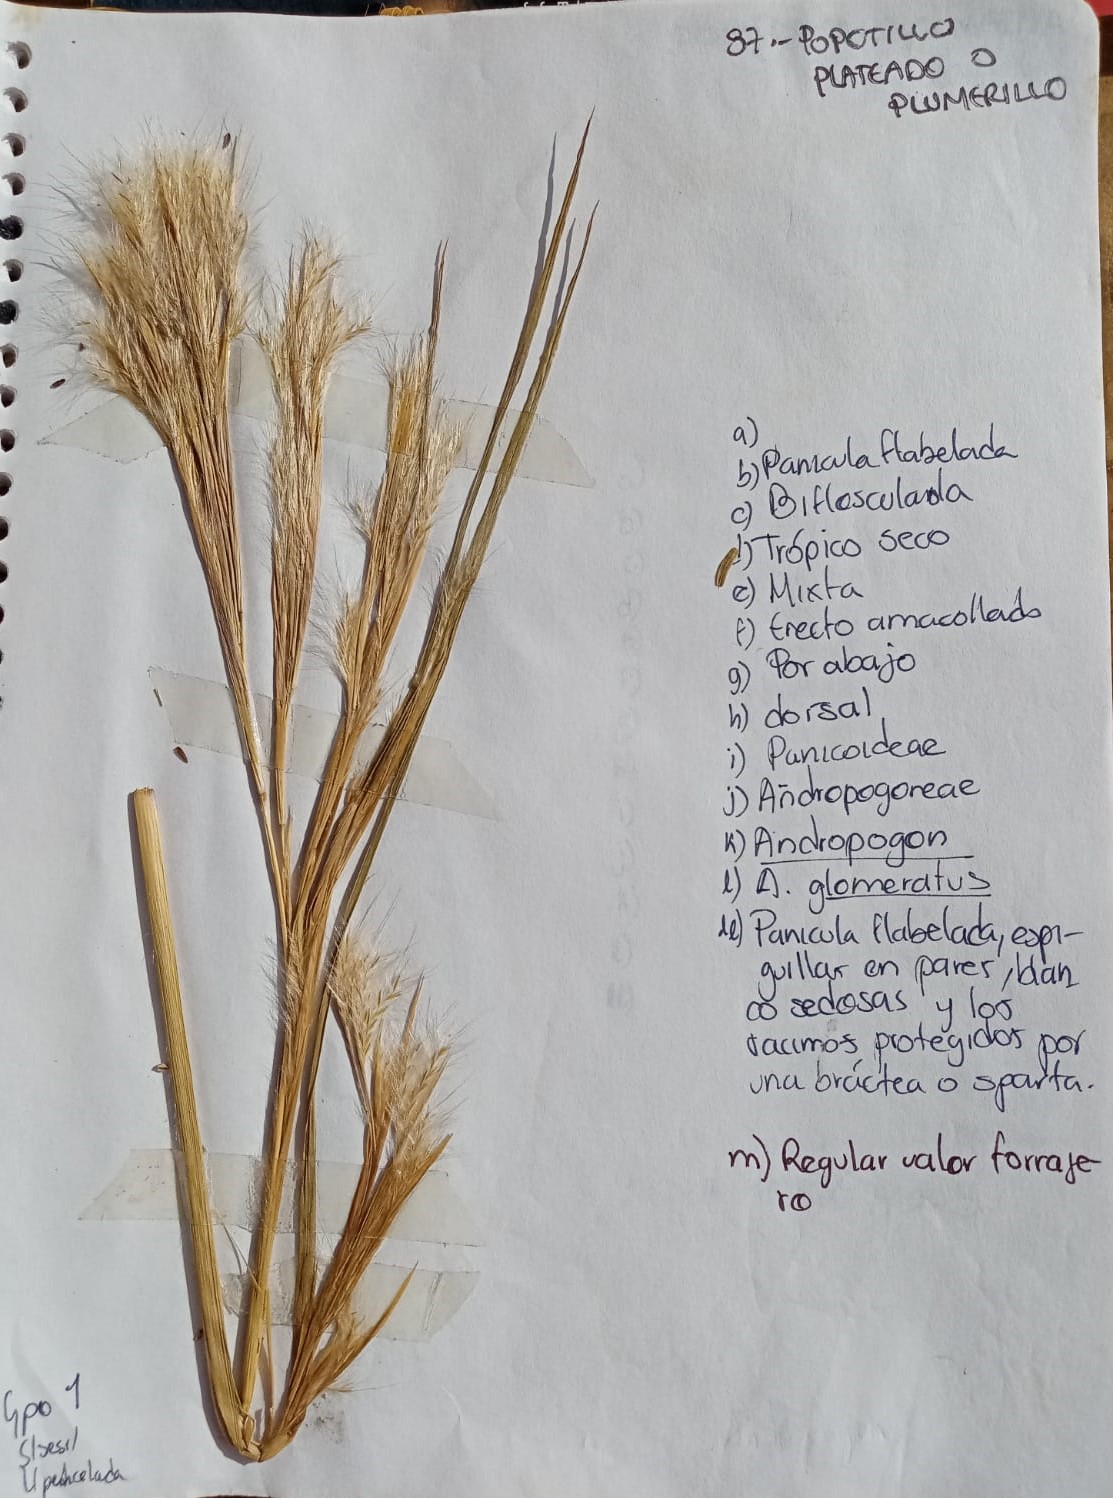 87.- POPOTILLO
PLATEADO O
PLUMERILLO
a)
b) Panicula flabelada
c) Biflosculada
d) Trópico seco
e) Mixta
f) Erecto amacollado
g) Por abajo
h) dorsal
i) Panicoideae
j) Andropogoneae
k) Andropogon
l) A. glomeratus
ll) Panicula flabelada, espi-
guillas en pares, blan
cos sedosas y los
racimos protegidos por
una bráctea o sparta.
m) Regular valor forraje-
ro
Gpo 1
S/sesil
U pedicelada